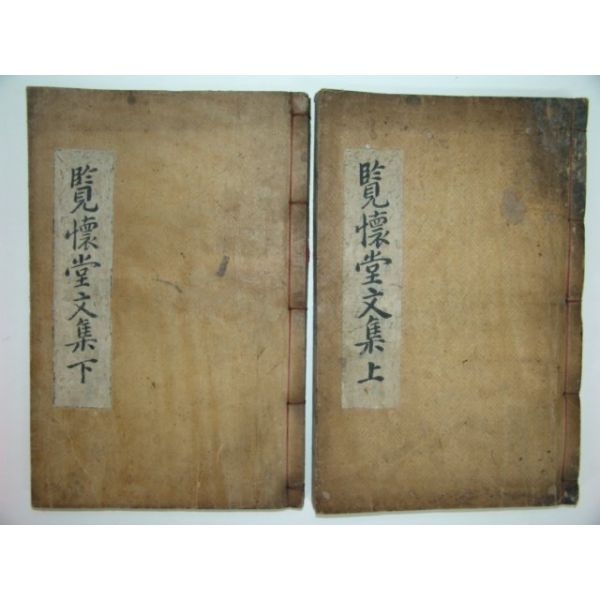 覽懷堂文集上
覽懷堂文集下